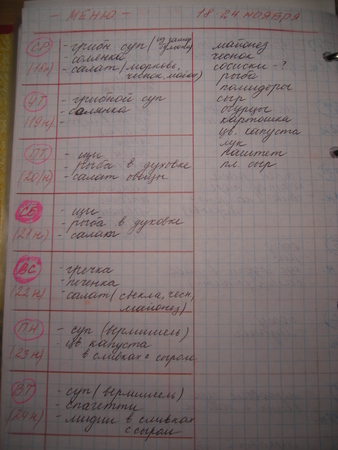 - МЕНЮ. -
18-24 НОЯБРЯ
СР
(18н)
- грибн. суп (из замор
- солянка
- салат (морковь,
чеснок, майон)
ЧТ
(19н)
- грибной суп
- солянка
ПТ
(20н)
- щи
- рыба в духовке
- салат овощн
СБ
(21н)
- щи
- рыба в духовке
- салат
ВС
(22н)
- гречка
- печенка
- салат (свекла, чесн,
майонез)
ПН
(23н)
- суп (вермишель)
- цв капуста
в сливках с сыром
ВТ
(24н)
- суп (вермишель)
- спагетти
- мидии в сливках
с сыром
майонез
чеснок
сосиски - ?
рыба
помидоры
сыр
огурцы
картошка
цв. капуста
лук
паштет
пл. сыр